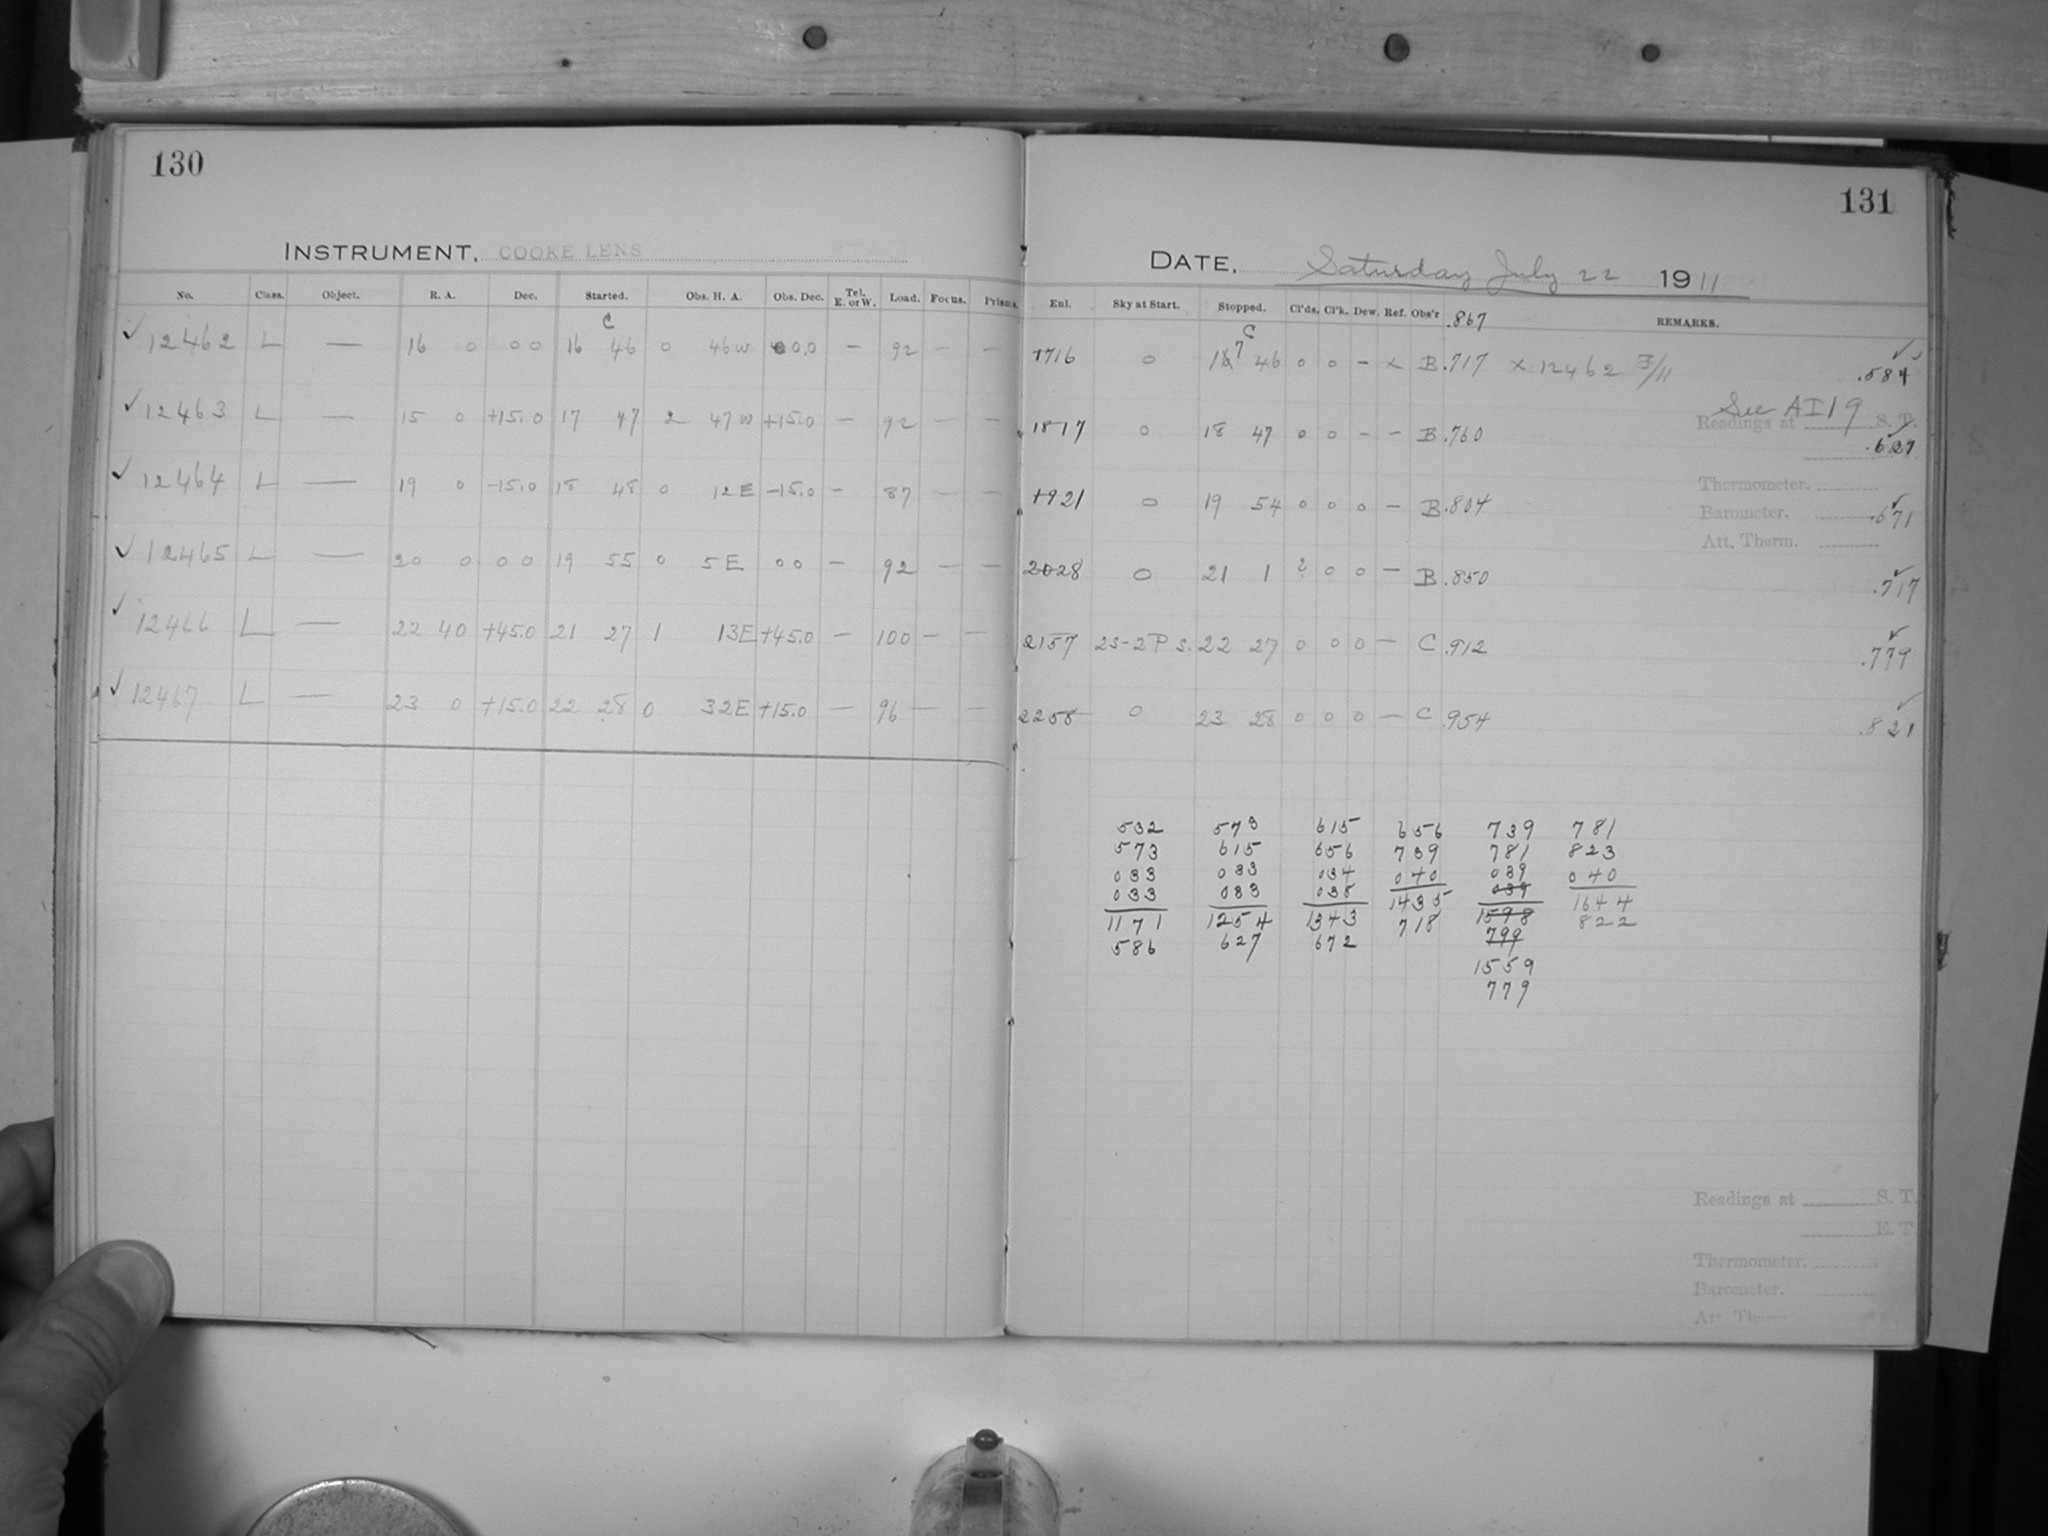 130
INSTRUMENT, COOKE LENS
No. Class. Object. R. A. Dec. Started. Obs. H. A. Obs. Dec. Tel. E. or W. Load. Focus. Prisms.
C
✓ 12462 L — 16 0 00 16 46 0 46W 00,0 — 92 — —
✓ 12463 L — 15 0 +15.0 17 47 2 47W +15.0 — 92 — —
✓ 12464 L — 19 0 -15.0 18 48 0 12E -15.0 - 87 — —
✓ 12465 L — 20 0 00 19 55 0 5E 00 — 92 — —
✓ 12466 L — 22 40 +45.0 21 27 1 13E +45.0 — 100 — —
✓ 12467 L — 23 0 +15.0 22 28 0 32E +15.0 — 96 — —
131
DATE, Saturday July 22 1911
Enl. Sky at Start. Stopped. Cl'ds. Cl'k. Dew. Ref. Obs'r .867 REMARKS.
C
1716 0 17 46 0 0 - x B .717 x 12462 3/11 .584 ✓
See AI19
Readings at S. T.
1817 0 18 47 0 0 - - B .760 .627
Thermometer.
1921 0 19 54 0 0 0 — B .804 .671 ✓
Barometer.
Att. Therm.
2028 0 21 1 2 0 0 — B .850 .717 ✓
2157 2S-2P S. 22 27 0 0 0 — C .912 .779 ✓
2258 0 23 28 0 0 0 — C .954 .821 ✓
532 573 615 656 739 781
573 615 656 739 781 823
033 033 034 040 039 040
033 033 038 1435 039 1644
1171 1254 1343 718 1598 822
586 627 672 799
1559
779
Readings at S. T.
E. T.
Thermometer.
Barometer.
Att. Therm.